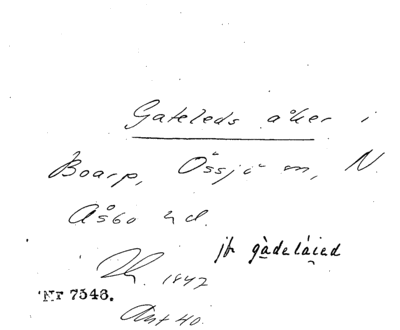 Gateleds åker i
Boarp, Össjö sn, N.
Åsbo hd.
jfr gàdeláied
1847
Nr 7548.
Ant 40.